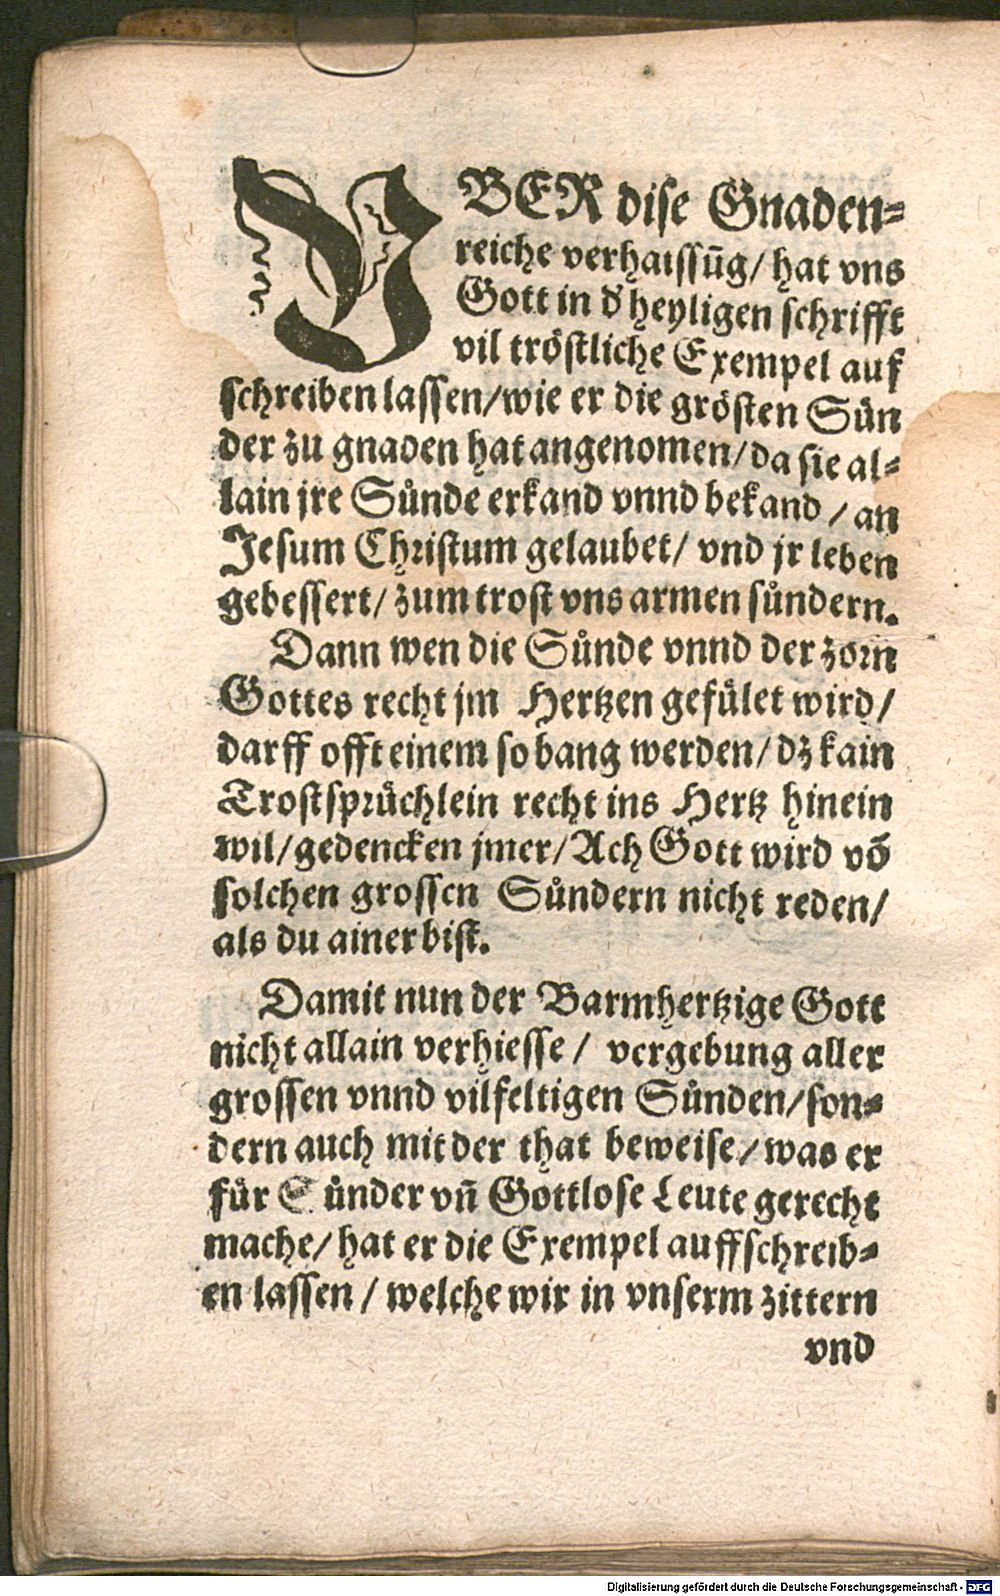 VBER dise Gnaden-
reiche verhaissūg/ hat vns
Gott in d' heyligen schrifft
vil tröstliche Exempel auf
schreiben lassen/wie er die grösten Sün
der zu gnaden hat angenomen/da sie al-
lain jre Sünde erkand vnnd bekand / an
Jesum Christum gelaubet/ vnd jr leben
gebessert/ zum trost vns armen sündern.
Dann wen die Sünde vnnd der zorn
Gottes recht jm Hertzen gefület wird/
darff offt einem so bang werden/ dz kain
Trostsprüchlein recht ins Hertz hinein
wil/gedencken jmer/Ach Gott wird võ
solchen grossen Sündern nicht reden/
als du ainer bist.
Damit nun der Barmhertzige Gott
nicht allain verhiesse / vergebung aller
grossen vnnd vilfeltigen Sünden/son-
dern auch mit der that beweise/was er
für Sünder vñ Gottlose Leute gerecht
mache/ hat er die Exempel auffschreib-
en lassen / welche wir in vnserm zittern
vnd
Digitalisierung gefördert durch die Deutsche Forschungsgemeinschaft - DFG